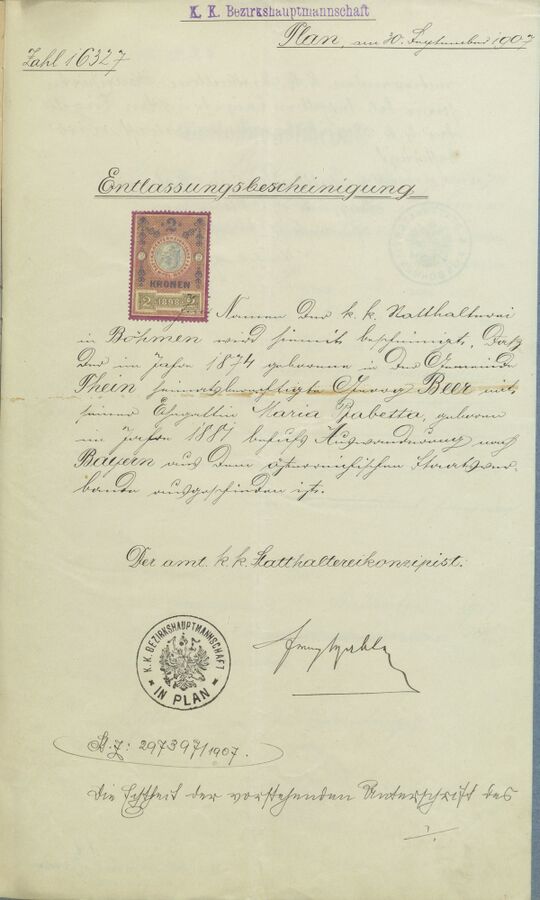 K. K. Bezirkshauptmannschaft
Plan, am 30. September 1907
Zahl 16327
Entlassungsbescheinigung
2
KRONEN
2 1898
Namen der k. k. Statthalterei
in Böhmen wird hiemit bescheinigt, daß
der im Jahre 1874 geborene in der Gemeinde
Thein heimatberechtigte Georg Beer mit
seiner Ehegattin Maria Babetta, geboren
im Jahre 1881 behufs Auswanderung nach
Bayern aus dem österreichischen Staatsver-
bande ausgeschieden ist.
Der amt. k. k. Statthaltereikonzipist:
K.K. BEZIRKSHAUPTMANNSCHAFT
IN PLAN
297397/1907.
Die Echtheit der vorstehenden Unterschrift des